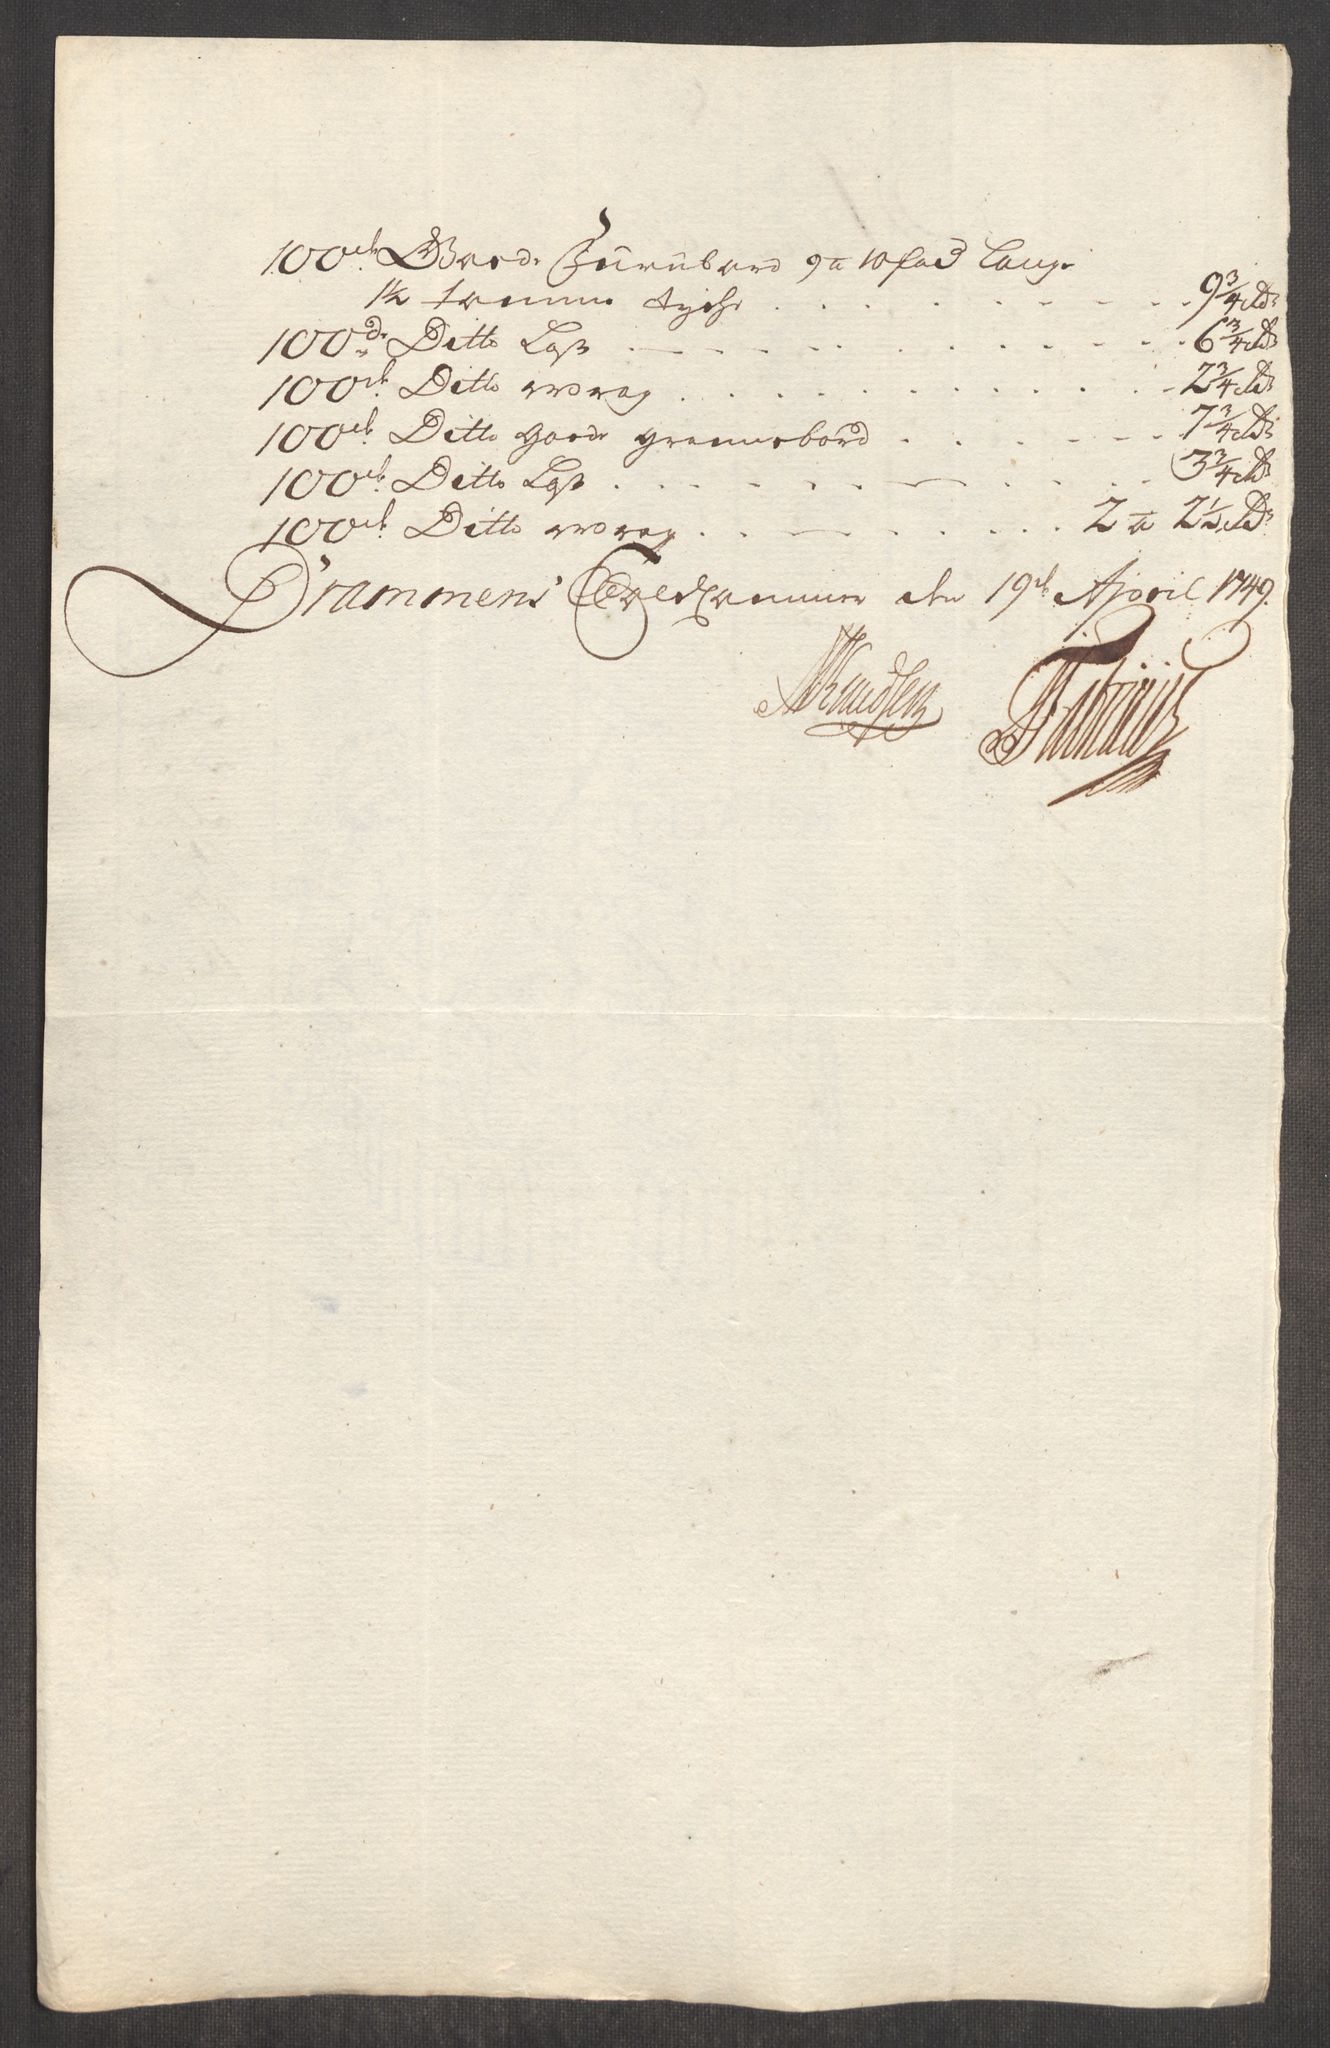 100de Goede Furubord 9 a 10 fod lange
1¼ tomme tycke . . . . . . . . . 9¾ Rd
100de Ditto Lass . . . . . . . . . 6¾ Rd
100de Ditto wrag . . . . . . . . . 2¾ Rd
100de Ditto goede grannebord . . . . . 7¾ Rd
100de Ditto Lass . . . . . . . . . 3¾ Rd
100de Ditto wrag . . . . . . . . 2 a 2½ Rd
Drammens Toldkammer den 19de April 1749.
Knudsen Fabritius